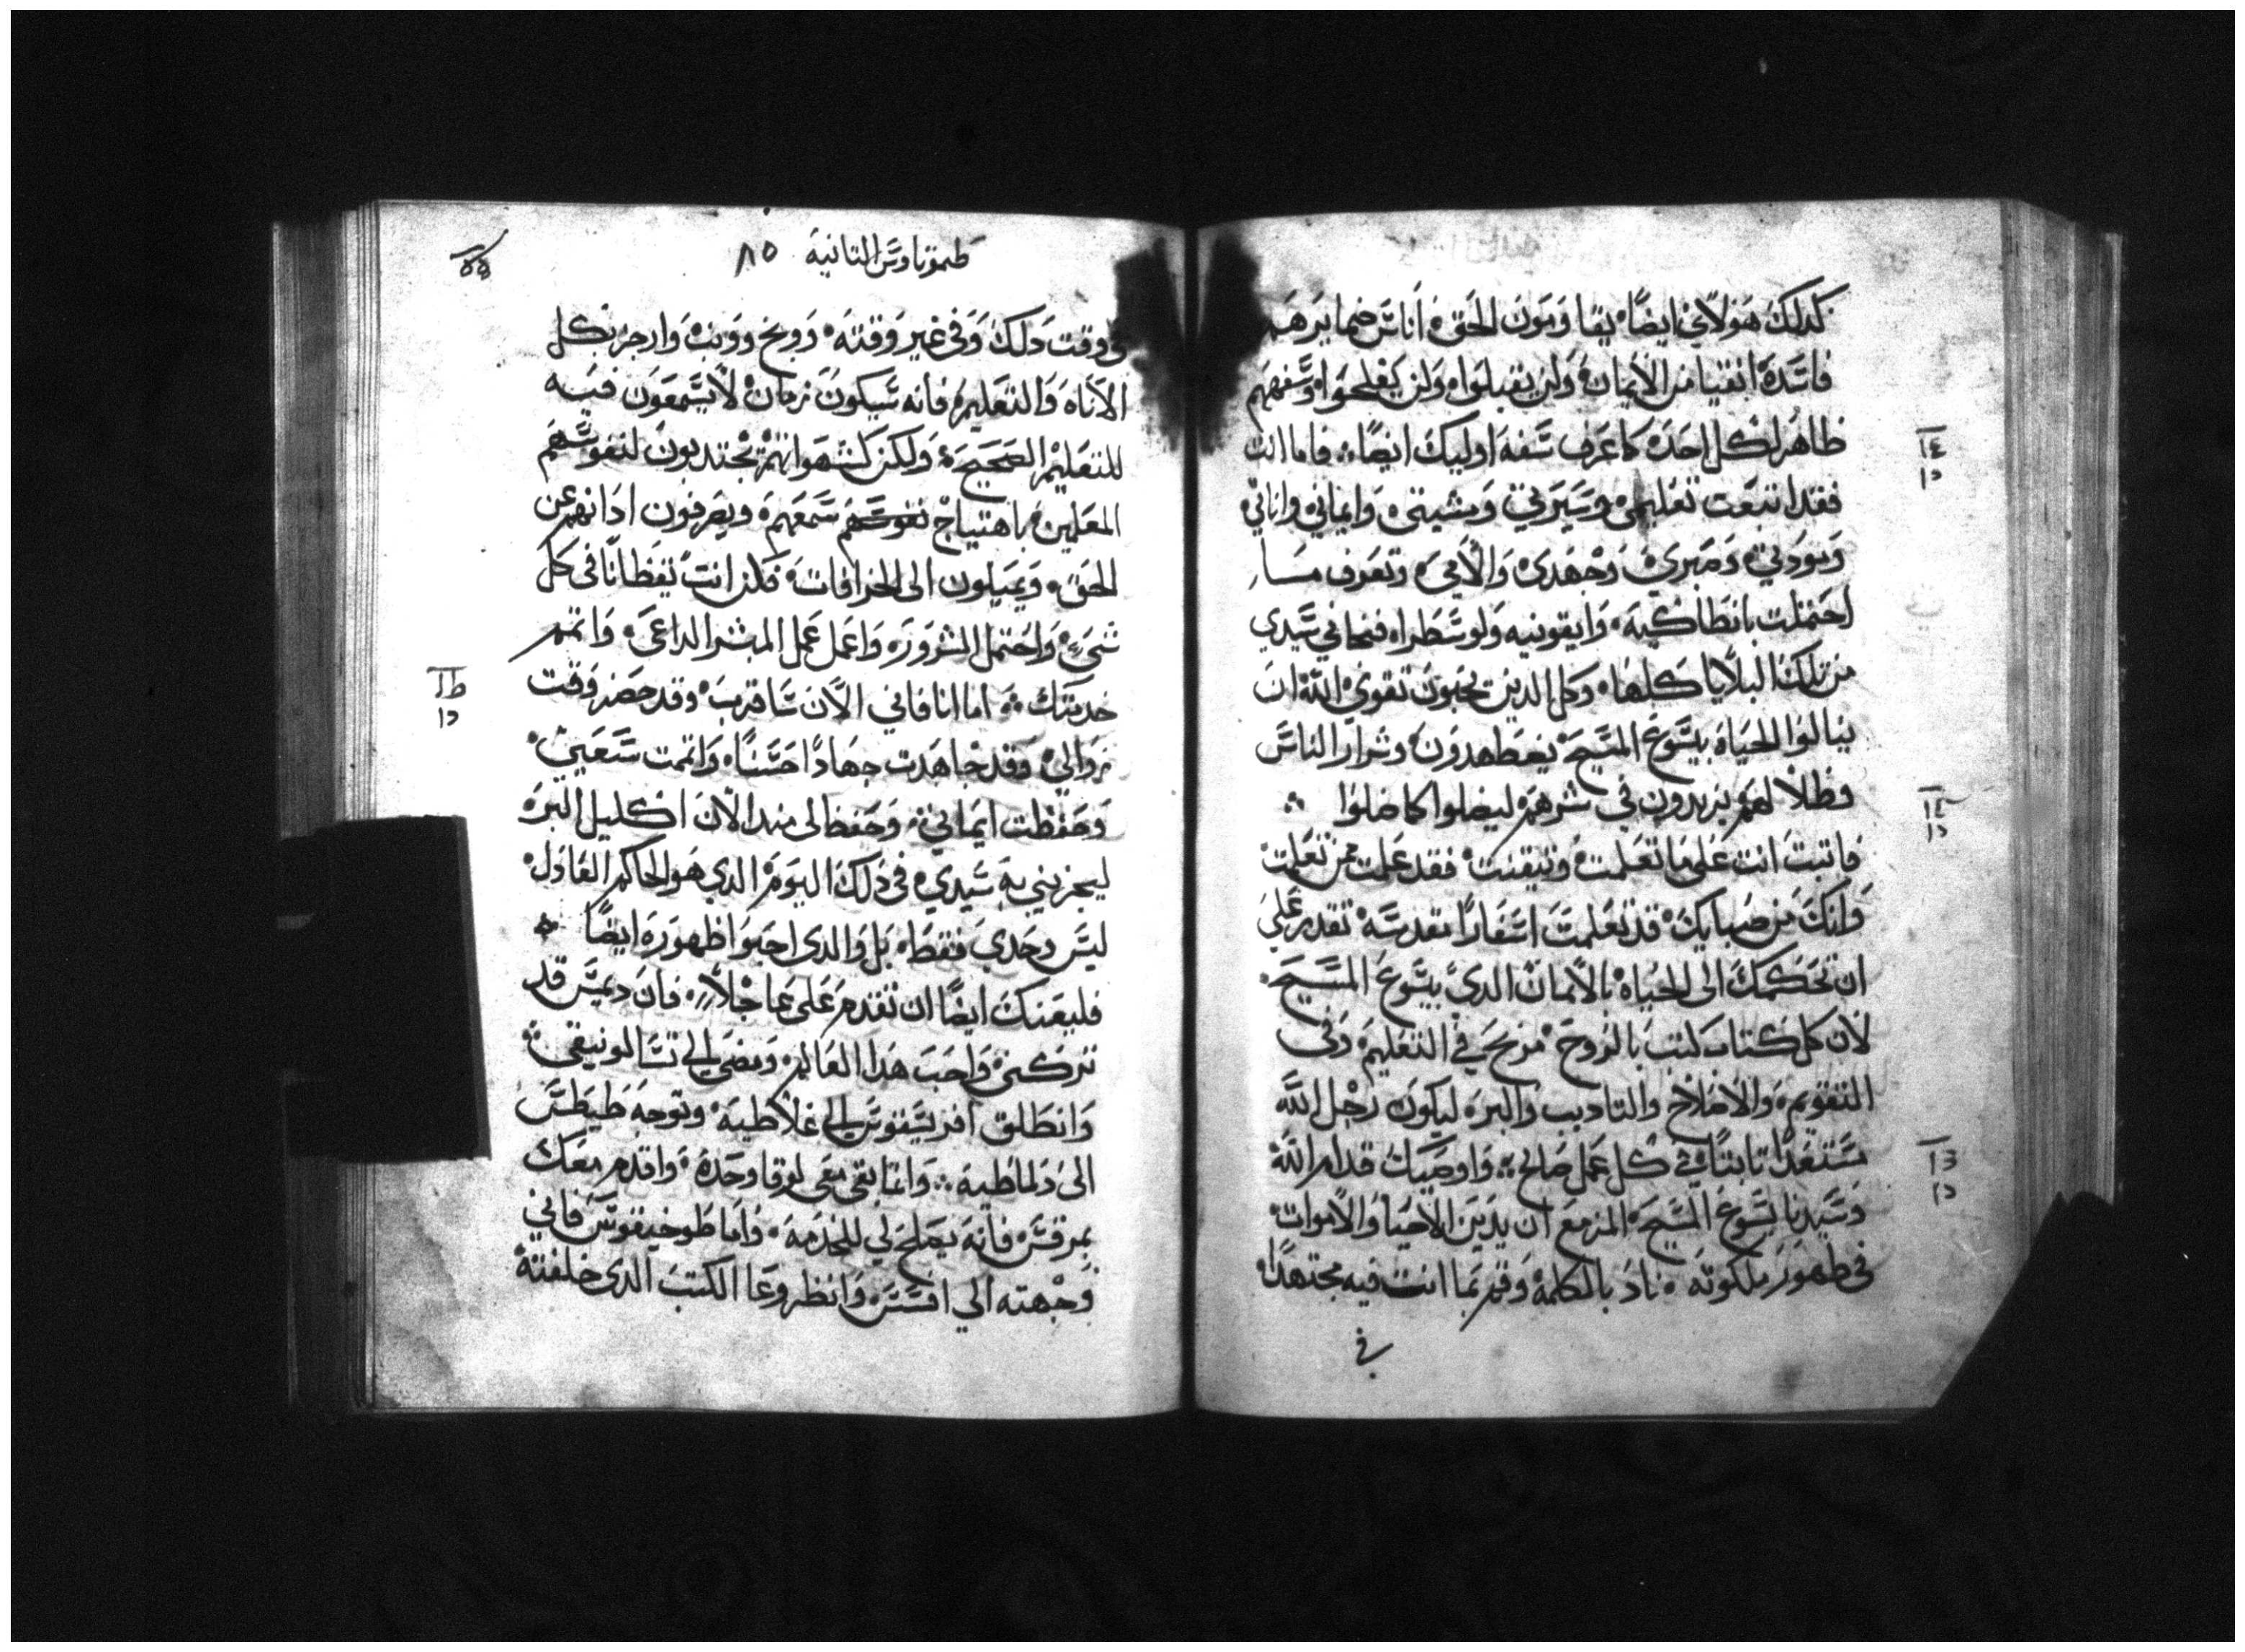 كدلك هولاي ايضًا يقاومون الحق اناس ضمايرهم
فاسدة انقيا من الايمان ولن يقبلوا ولن يفلحوا وسفههم
ظاهر لكل احد كما عرف سفه اوليك ايضًا فاما انت
فقد اتبعت تعليمي وسيرتي ومشيتي وايماني واناتي
ومودتي وصبري وجهدي والامي وتعرف مسا
احتملت بانطاكية وايقونيه ولوسطرا فنجاني سيدي
من تلك البلايا كلها وكل الدين يحبون تقوي الله ان
ينالوا الحياة بيسوع المسيح يضطهدون وشرار الناس
وظلالهم يزيدون في شرهم ليضلوا كما ضلوا
فاتبت انت على ما تعلمت وتيقنت فقد علمت ممن تعلمت
وانك من صبايك قد تعلمت اسفارا مقدسة تقدر على
ان تحكمك الى الحياة بالايمان الدي بيسوع المسيح
لان كل كتاب كتب بالروح مربح في التعليم وفى
التقويم والاصلاح والتاديب والبر ليكون رجل الله
ستعدا تابتا في كل عمل صالح واوصيك قدام الله
وسيدنا يسوع المسيح المزمع ان يدين الاحيا والاموات
في ظهور ملكوته ناد بالكلمة وقم بما انت فيه مجتهدا
في
طيموتاوس التانية ٨٥
في وقت دلك وفى غير وقته ووبخ وونب وارجز بكل
الاناه والتعليم فانه سيكون زمان لا يسمعون فيه
للتعليم الصحيح ولكن كشهواتهم يجتدبون لنفوسهم
المعلمين باهتياج نفوسهم سمعهم ويصرفون ادانهم عن
الحق ويميلون الى الخرافات فكن انت يقظانا في كل
شيء واحتمل الشرور واعمل عمل المبشر الداعي واتمم
خدمتك اما انا فاني الان ساقرب وقد حضر وقت
زوالي وقد جاهدت جهادا حسنا واتممت سعيي
وحفظت ايماني وحفظ لى مند الان اكليل البر
ليجزيني به سيدي في دلك اليوم الدي هو الحاكم العادل
ليس وحدي فقط بل والدى احبوا ظهوره ايضًا
فليعنك ايضًا ان تقدم على عاجلا فان ديمس قد
تركني واحب هدا العالم ومضى الي تسالونيقي
وانطلق اقريسقوس الي غلاطية وتوجه طيطس
الى دلماطية وانما بقي معي لوقا وحده واقدم معك
بمرقس فانه يصلح لي للخدمة واما طوخيقوس فاني
وجهته الي افسس وانظر وعا الكتب الدى خلفته